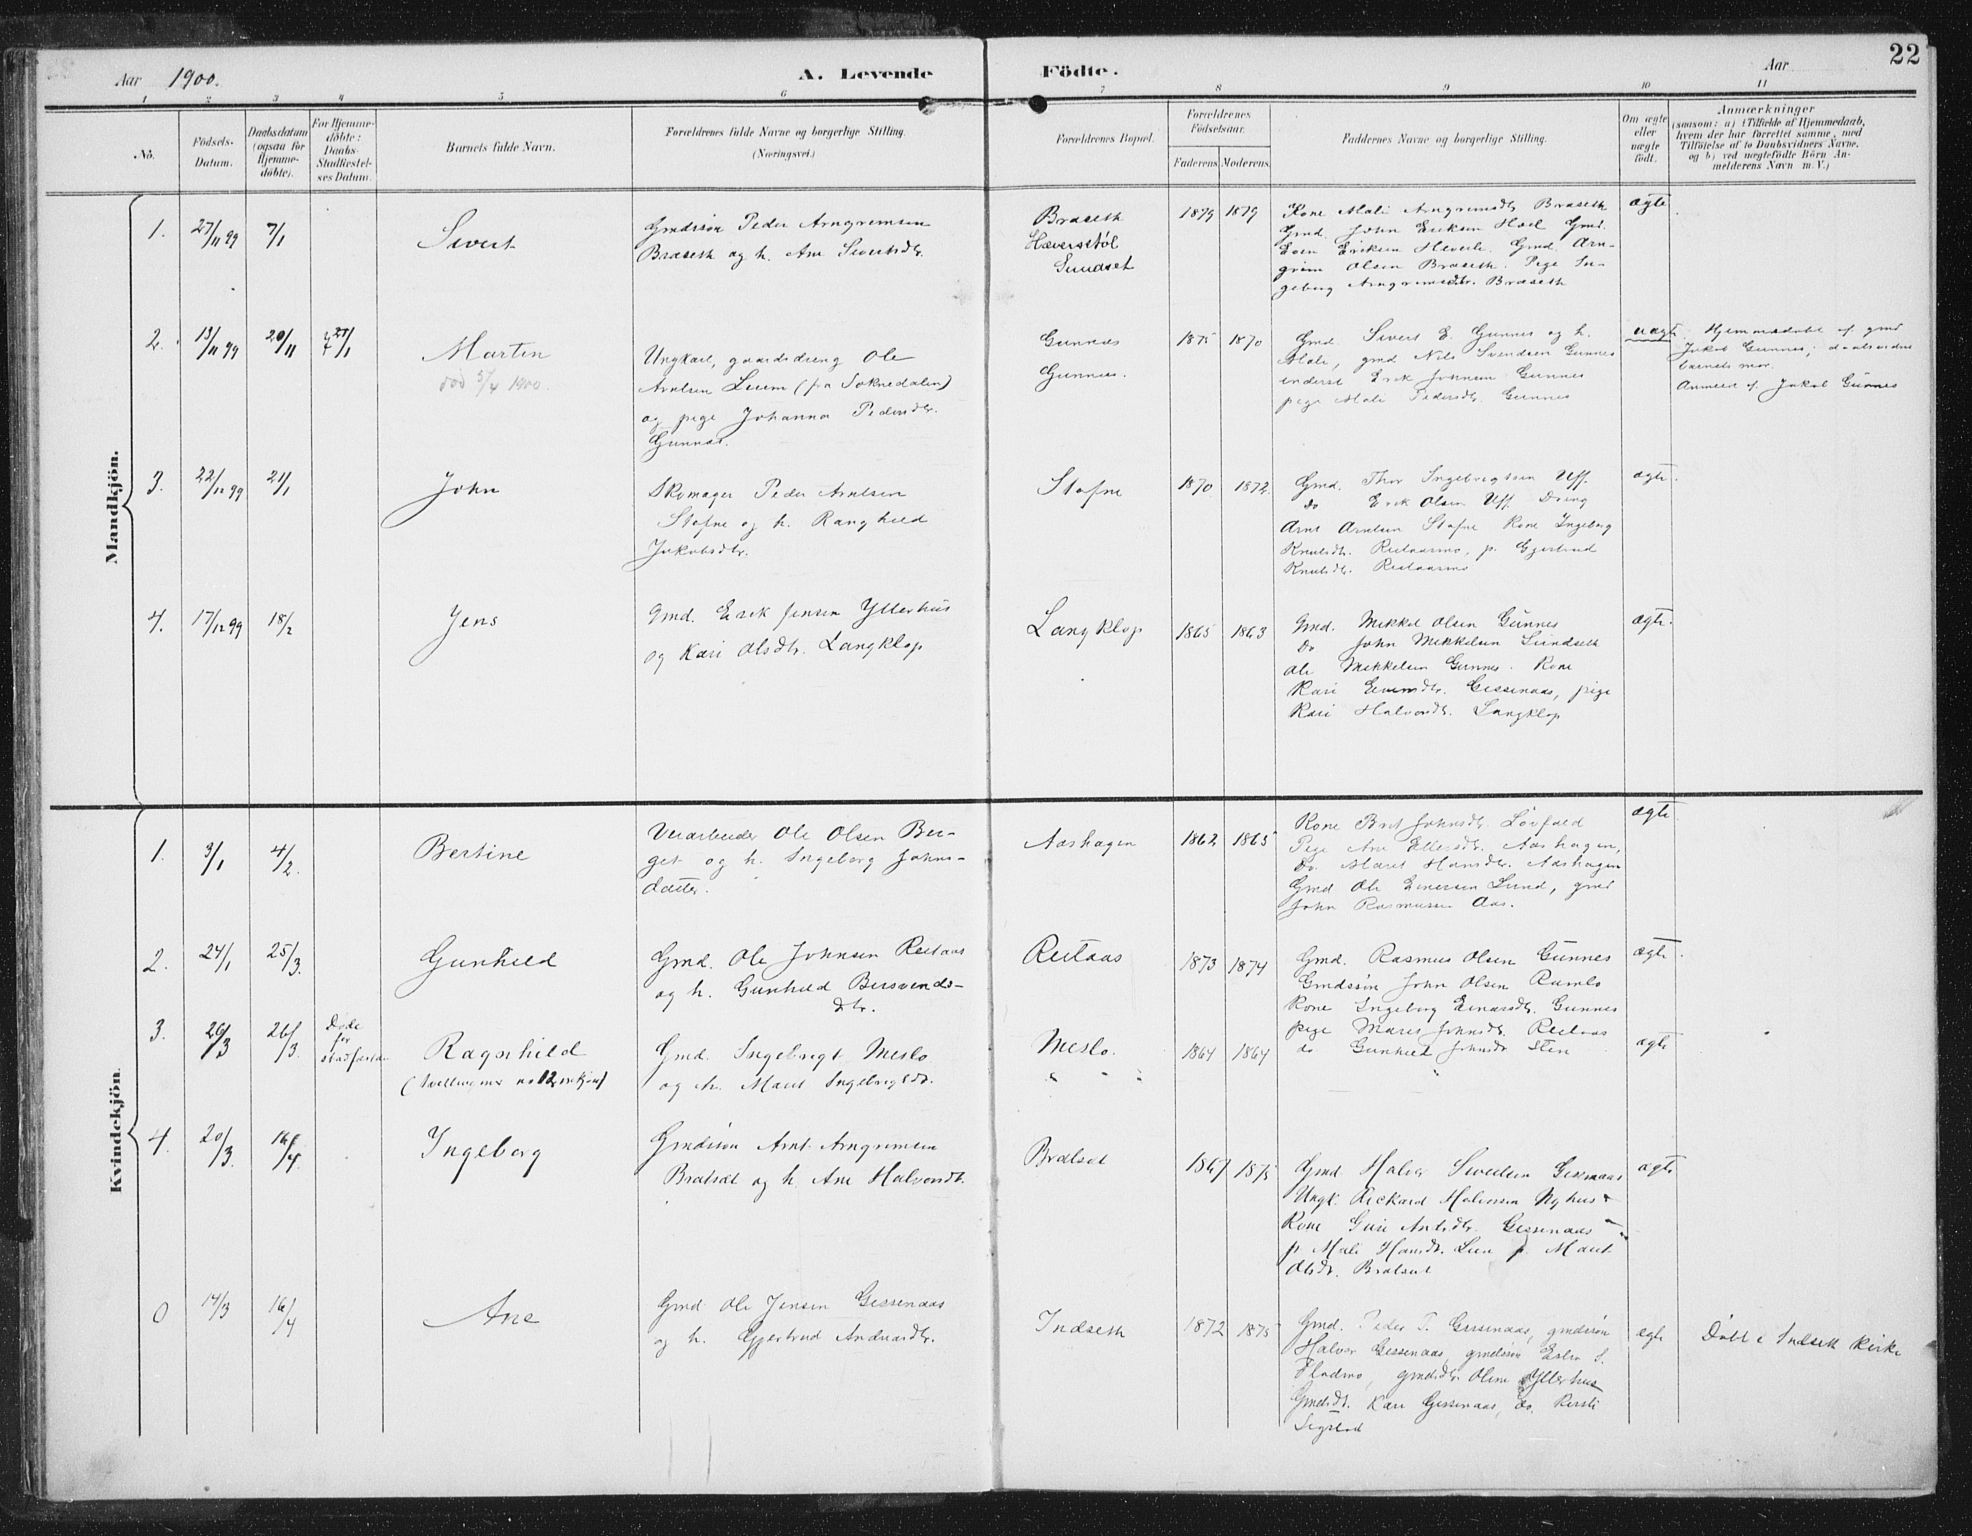 22
Aar 1900.
A. Levende
Födte.
Aar
1 2 3 4 5 6 7 8 9 10 11
No.
Födsels-
Datum.
Daabsdatum
(ogsaa for
Hjemme-
döbte).
For Hjemme-
döbte:
Daabs-
Stadfæstel-
ses Datum.
Barnets fulde Navn.
Forældrenes fulde Navne og borgerlige Stilling.
(Næringsvei.)
Forældrenes Bopæl.
Forældrenes
Födselsaar.
Faderens Moderens.
Faddernes Navne og borgerlige Stilling.
Om ægte
eller
uægte
födt.
Anmærkninger
(saasom: a) i Tilfælde af Hjemmedaab,
hvem der har forrettet samme, med
Tilföielse af to Daabsvidners Navne,
og b) ved uægtefödte Börn An-
melderens Navn m. V.)
Mandkjön.
1. 27/11 99 7/1
Sivert
Gmdssøn Peder Arngrimsen
Bræseth og h. Ane Sivertsdtr.
Bræseth
Hæverstöl
Sundset
1879 1879
Kone Mali Arngrimsdtr Bræseth
Gmd. John Eriksen Hoel Gmd.
Even Eriksen Heverli. Gmd. Arn-
grim Olsen Bræseth. Pige In-
geborg Arngrimsdtr. Bræseth
ægte
2. 13/11 99 20/11 21/1
Martin
død 3/4 1900.
Ungkarl, gaardsdreng Ole
Arntsen Leum (fra Soknedalen)
og pige Johanna Pedersdtr.
Gunnes.
Gunnes
Gunnes.
1875 1870
Gmd. Sivert E. Gunnes og h.
Mali, gmd Nils Svendsen Gunnes
inderst Erik Johnsen Gunnes
pige Mali Pedersdtr. Gunnes
uægte
Hjemmedøbt af gmd
Jakob Gunnes;
barnets mor.
Anmeldt af Jakob Gunnes
3. 22/12 99 21/1
John
Skomager Peder Arntsen
Stofne og h. Ranghild
Jakobsdtr.
Stofne
1870 1872
Gmd. Thor Ingebrigtsen Uff.
Do Erik Olsen Uff. Dreng
Arnt Arntsen Stofne Kone Ingeborg
Knutsdtr. Reitaasmo, p. Gjertrud
Knutsdtr. Reitaasmo
ægte
4. 17/12 99 18/2
Jens
Gmd. Erik Jensen Ytterhus
og Kari Olsdtr. Langklop
Langklop
1865 1863
Gmd. Mikkel Olsen Gunnes
Do John Mikkelsen Sundseth
Ole Mikkelsen Gunnes. Kone
Kari Evensdtr. Gissenaas, pige
Kari Halvorsdtr. Langklop
ægte.
Kvindekjön.
1. 3/1 4/2.
Bertine
Veiarbeider Ole Olsen Ber-
get og h. Ingeborg Johns-
datter.
Aashagen
1862 1865
Kone Brit Johnsdtr. Løvfald
Pige Ane Ellersdtr. Aashagen,
Do. Marit Hansdtr. Aashagen
Gmd Ole Einersen Lund, gmd
John Rasmussen Aas.
ægte
2. 24/1 25/3.
Gunhild
Gmd. Ole Johnsen Reitaas
og h. Gunhild Bersvends-
dtr.
Reitaas
1873 1874
Gmd. Rasmus Olsen Gunnes
Gmdssøn John Olsen Ramlo
Kone Ingeborg Einarsdtr. Gunnes
pige Marit Johnsdtr. Reitaas
do Gunhild Johnsdtr Sten
ægte.
3. 26/3 26/3.
Døde
før
stadfæstn
Ragnhild
(tvilling mr no 12 mkjøn)
Gmd. Ingebrigt Meslo
og h. Marit Ingebrigtsdtr.
Meslo.
1864 1864
ægte
4. 20/3. 16/4.
Ingeborg
Gmdssøn Arnt Arngrimsen
Bratset og h. Ane Halvorsdtr.
Bratset
1867 1875
Gmd Halvor Sivertsen Gissenaas
Ungk. Rickard Halvorsen Nyhus
Kone Guri Antsdtr. Gissenaas
p. Mali Hansdtr. Lien p. Marit
Olsdtr. Bratset
ægte
0 14/3 16/4
Ane
Gmd Ole Jensen Gissenaas
og h. Gjertrud Andreasdtr.
Indseth
1872 1875
Gmd. Peder P. Gissenaas, gmdssøn
Halvor Gissenaas, gmdssøn S.
Flodmo, gmdsdtr Oline Ytterhus
Gmdsdtr. Kari Gissenaas, do. Kirsti
Sigstad
ægte
Døbt i Indseth kirke